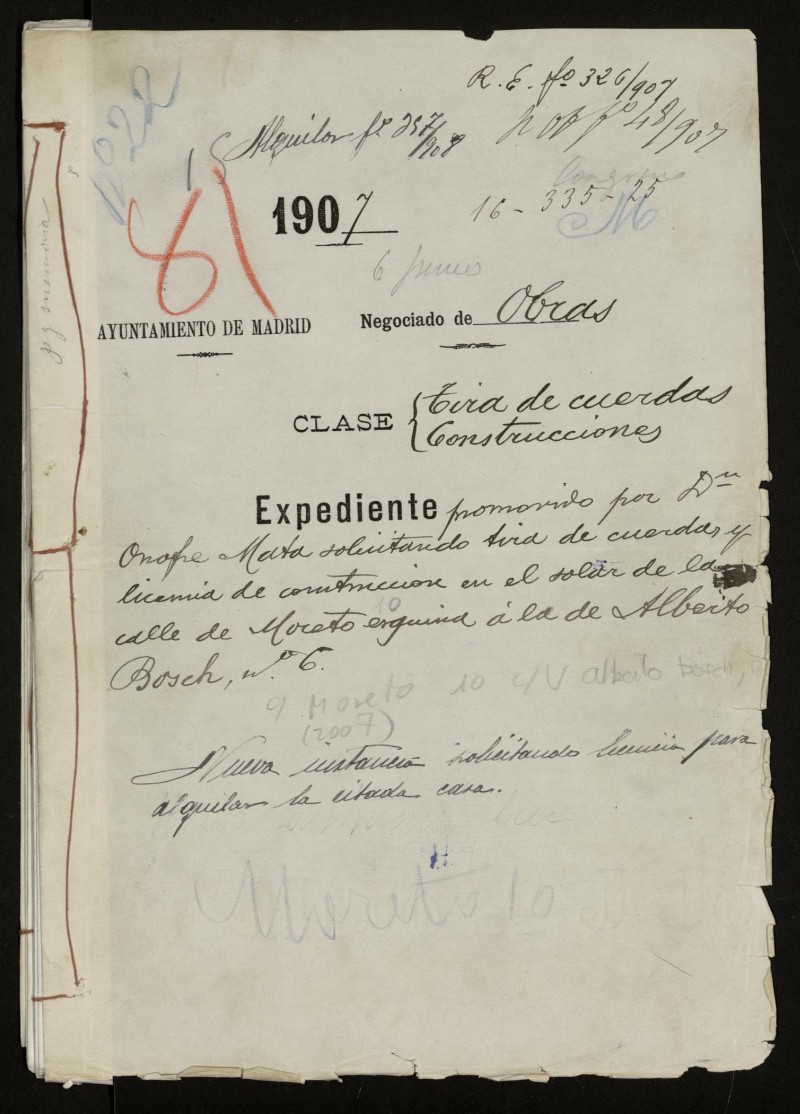 R. E. fº 326/907
Nº 22
Alquilar fº 257/908
fº 48/907
15
Congreso
81
1907
16-335-25
M
6 Junio
AYUNTAMIENTO DE MADRID
Negociado de Obras
CLASE { Tira de cuerdas
Construcciones
Expediente promovido por Dn
Onofre Mata solicitando tira de cuerdas y
licencia de construccion en el solar de la
calle de Moreto 10 esquina á la de Alberto
Bosch, nº 6.
c/ Moreto 10 c/V Alberto Bosch,
(2007)
Nueva instancia solicitando licencia para
alquilar la citada casa.
Moreto 10